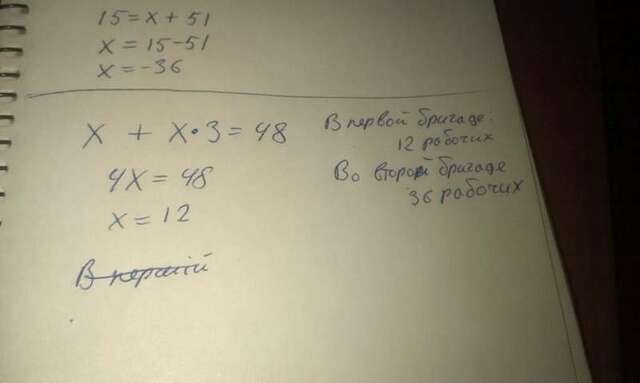 15 = x + 51
x = 15 - 51
x = -36
x + x·3 = 48
4x = 48
x = 12
В первой бригаде:
12 рабочих
Во второй бригаде
36 рабочих
В першій